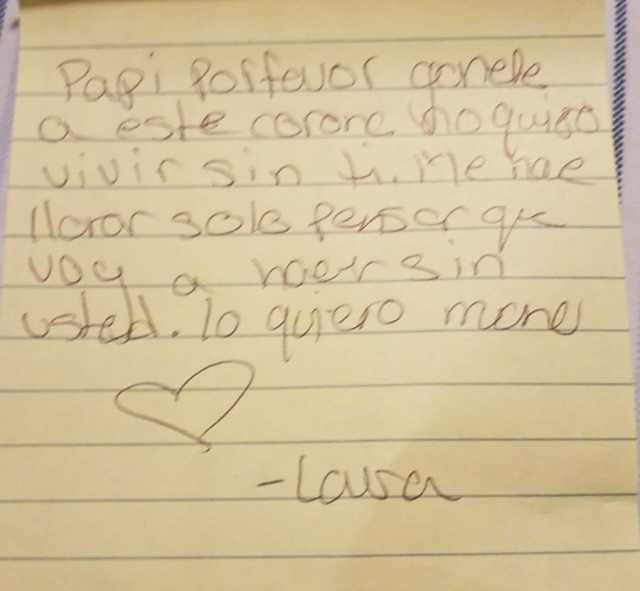 Papi Porfavor ganele
a este corona. no quiero
vivir sin ti. Me hae
llorar solo pensar qu
voy a haer sin
usted. lo quiero mone
-Laura